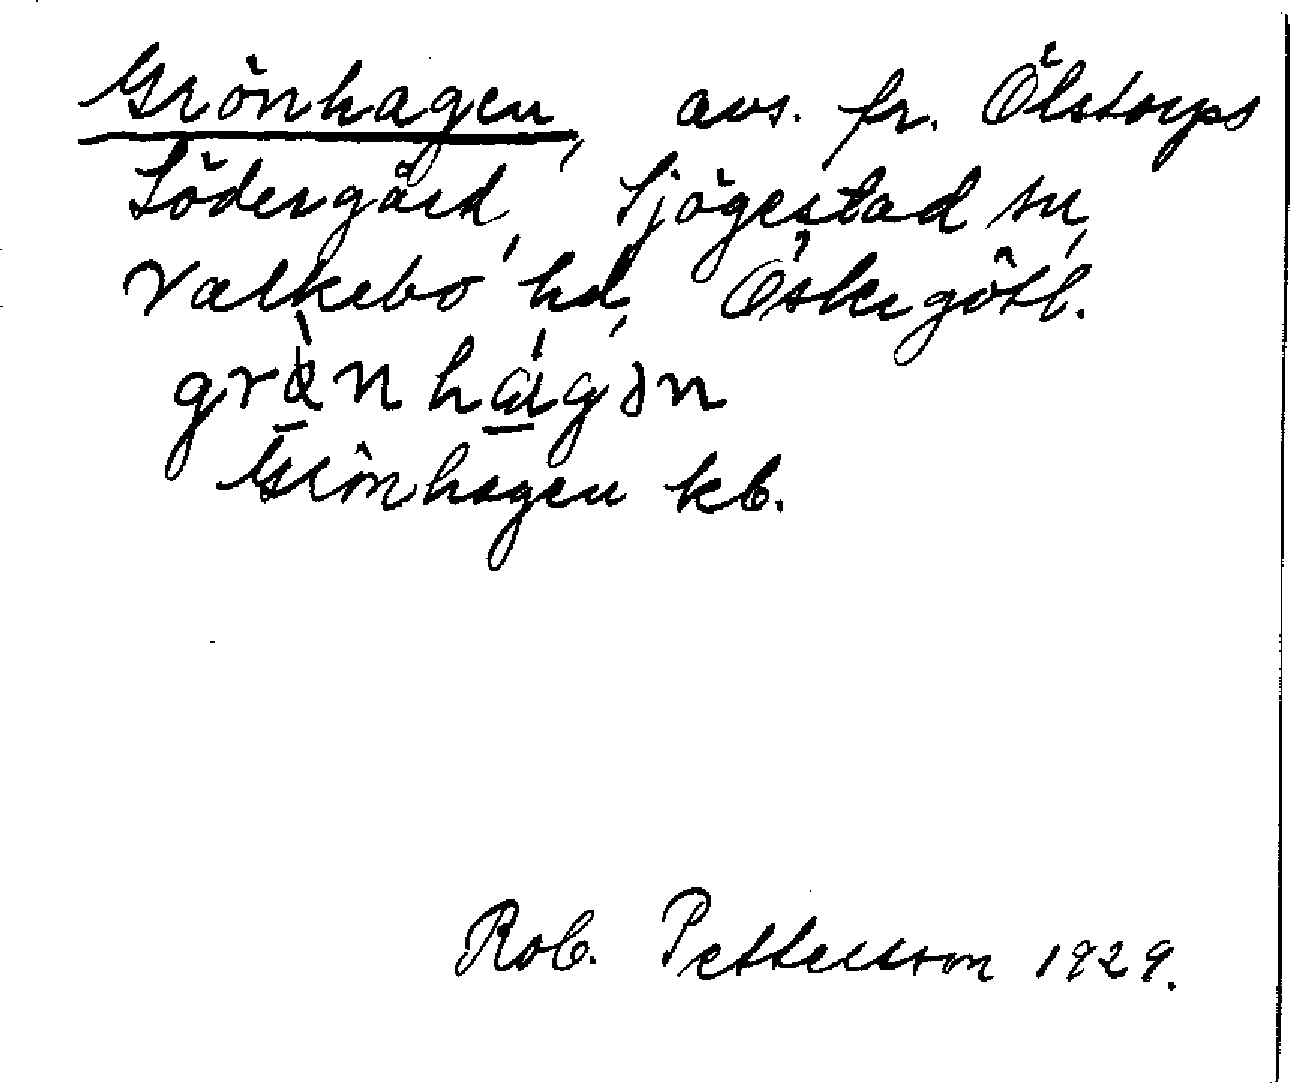 Grönhagen, avs. fr. Ölstorps
Södergård, Sjögestad sn,
Valkebo hd, Östergötl.
Grönhagen kb.
Rob. Pettersson 1929.